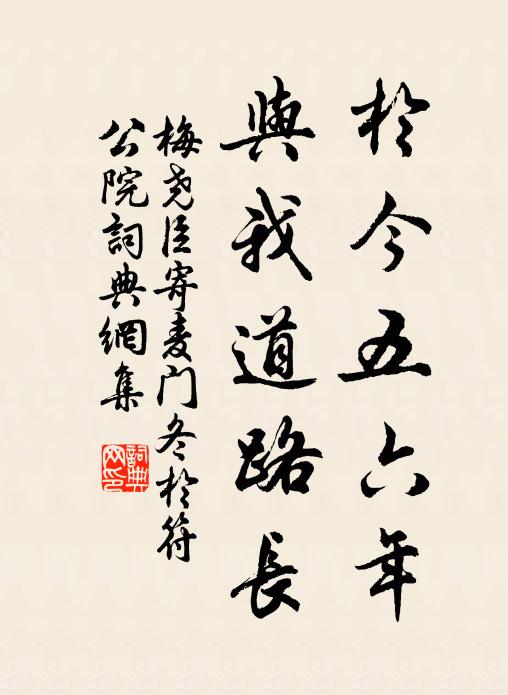 於今五六年
與我道路長
梅堯臣寄麦门冬於符
公院詞典網集
詞典
网印